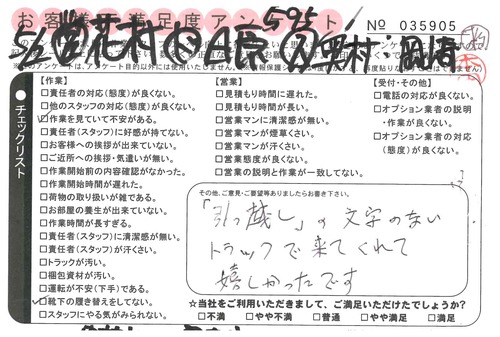 お客様満足度アンケート
№ 035905
595
5/3
チェックリスト
【作業】
□責任者の対応(態度)が良くない。
□他のスタッフの対応(態度)が良くない。
□作業を見ていて不安がある。
□責任者(スタッフ)に好感が持てない。
□お客様への挨拶が出来ていない。
□ご近所への挨拶・気遣いが無い。
□作業開始前の内容確認がなかった。
□作業開始時間が遅れた。
□荷物の取り扱いが雑である。
□お部屋の養生が出来ていない。
□作業時間が長すぎる。
□責任者(スタッフ)に清潔感が無い。
□責任者(スタッフ)が汗くさい。
□トラックが汚い。
□梱包資材が汚い。
□運転が不安(下手)である。
□靴下の履き替えをしてない。
□スタッフにやる気がみられない。
【営業】
□見積もり時間に遅れた。
□見積もり時間が長い。
□営業マンに清潔感が無い。
□営業マンが煙草くさい。
□営業マンが汗くさい。
□営業態度が良くない。
□営業の説明と作業が一致してない。
【受付・その他】
□電話の対応が良くない。
□オプション業者の説明
・作業が良くない。
□オプション業者の対応
(態度)が良くない。
その他、ご意見・ご要望等ありましたらお書き下さい。
「引っ越し」の文字のない
トラックで来てくれて
嬉しかったです
☆当社をご利用いただきまして、ご満足いただけたでしょうか?
□不満 □やや不満 □普通 □やや満足 □満足